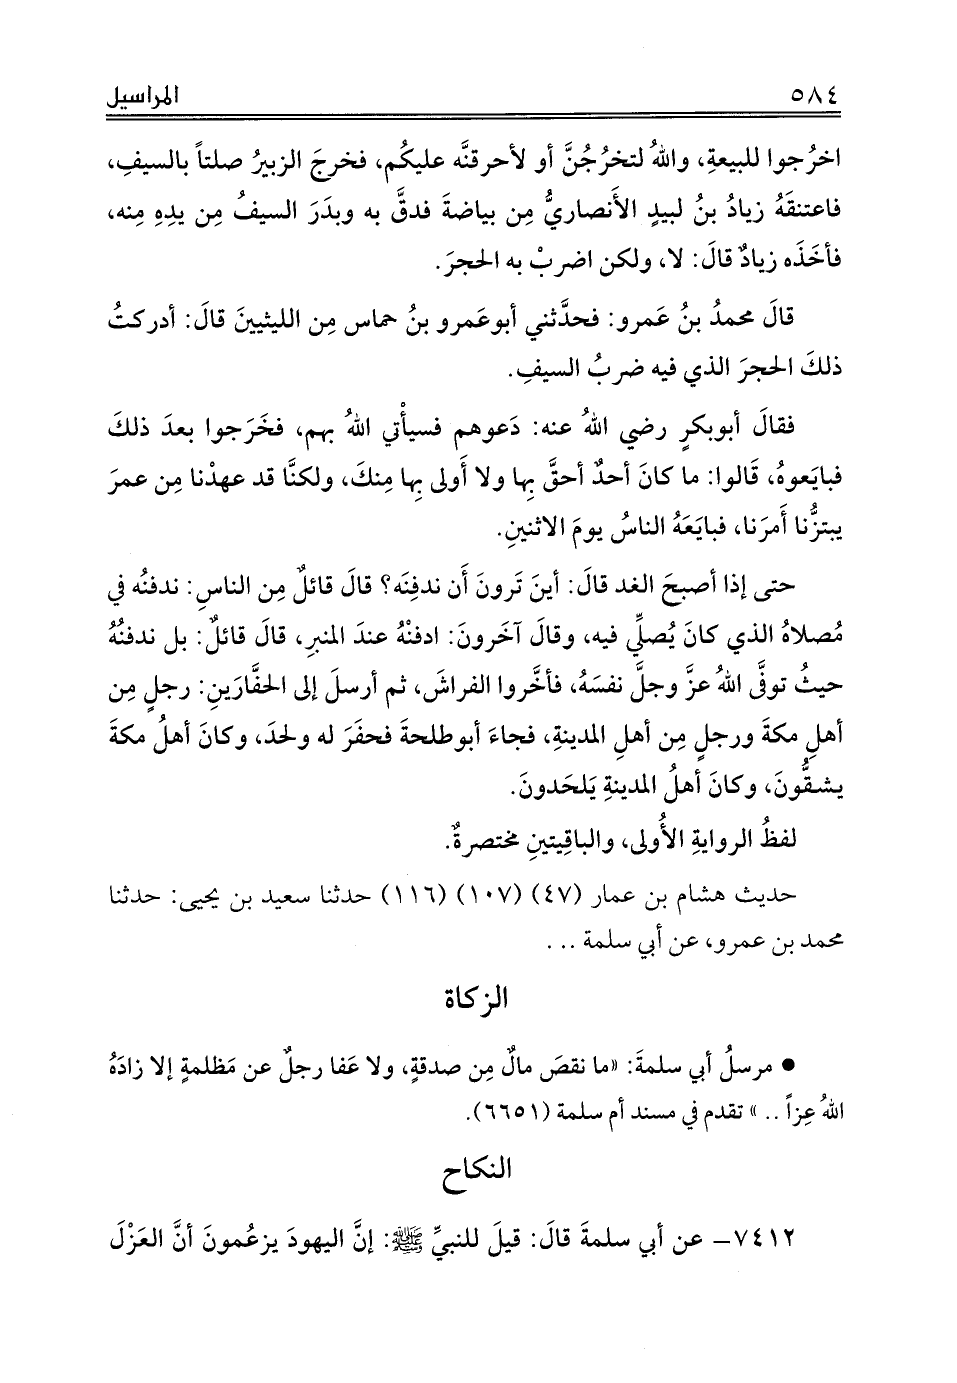 ٥٨٤ المراسيل
اخرُجوا للبيعةِ، واللهُ لتخرُجُنَّ أو لأحرقنَّه عليكُم، فخرجَ الزبيرُ صلتاً بالسيفِ،
فاعتنقَهُ زيادُ بنُ لبيدٍ الأَنصاريُّ مِن بياضةَ فدقَّ به وبدَرَ السيفُ مِن يدِهِ مِنه،
فأخَذَه زيادٌ قالَ: لا، ولكن اضربْ به الحجرَ.
قالَ محمدُ بنُ عَمرو: فحدَّثني أبوعَمرو بنُ حماس مِن الليثيينَ قالَ: أدركتُ
ذلكَ الحجرَ الذي فيه ضربُ السيفِ.
فقالَ أبوبكرٍ رضي اللهُ عنه: دَعوهم فسيأْتي اللهُ بهم، فخَرَجوا بعدَ ذلكَ
فبايَعوهُ، قَالوا: ما كانَ أحدٌ أحقَّ بِها ولا أَولى بِها مِنكَ، ولكنَّا قد عهدْنا مِن عمرَ
يبتزُّنا أَمرَنا، فبايَعَهُ الناسُ يومَ الاثنينِ.
حتى إذا أصبحَ الغد قالَ: أينَ تَرونَ أَن ندفِنَه؟ قالَ قائلٌ مِن الناسِ: ندفنُه في
مُصلاهُ الذي كانَ يُصلِّي فيه، وقالَ آخَرونَ: ادفنْهُ عندَ المنبرِ، قالَ قائلٌ: بل ندفنُهُ
حيثُ توفَّى اللهُ عزَّ وجلَّ نفسَهُ، فأخَّروا الفراشَ، ثم أرسلَ إلى الحفَّارَينِ: رجلٍ مِن
أهلِ مكةَ ورجلٍ مِن أهلِ المدينةِ، فجاءَ أبوطلحةَ فحفَرَ له ولحدَ، وكانَ أهلُ مكةَ
يشقُّونَ، وكانَ أهلُ المدينةِ يَلحَدونَ.
لفظُ الروايةِ الأُولى، والباقِيتينِ مختصرةٌ.
حديث هشام بن عمار (٤٧) (١٠٧) (١١٦) حدثنا سعيد بن يحيى: حدثنا
محمد بن عمرو، عن أبي سلمة ...
الزكاة
● مرسلُ أبي سلمةَ: «ما نقصَ مالٌ مِن صدقةٍ، ولا عَفا رجلٌ عن مَظلمةٍ إلا زادَهُ
اللهُ عِزاً ..» تقدم في مسند أم سلمة (٦٦٥١).
النكاح
٧٤١٢- عن أبي سلمةَ قالَ: قيلَ للنبيِّ ﷺ: إنَّ اليهودَ يزعُمونَ أنَّ العَزْلَ